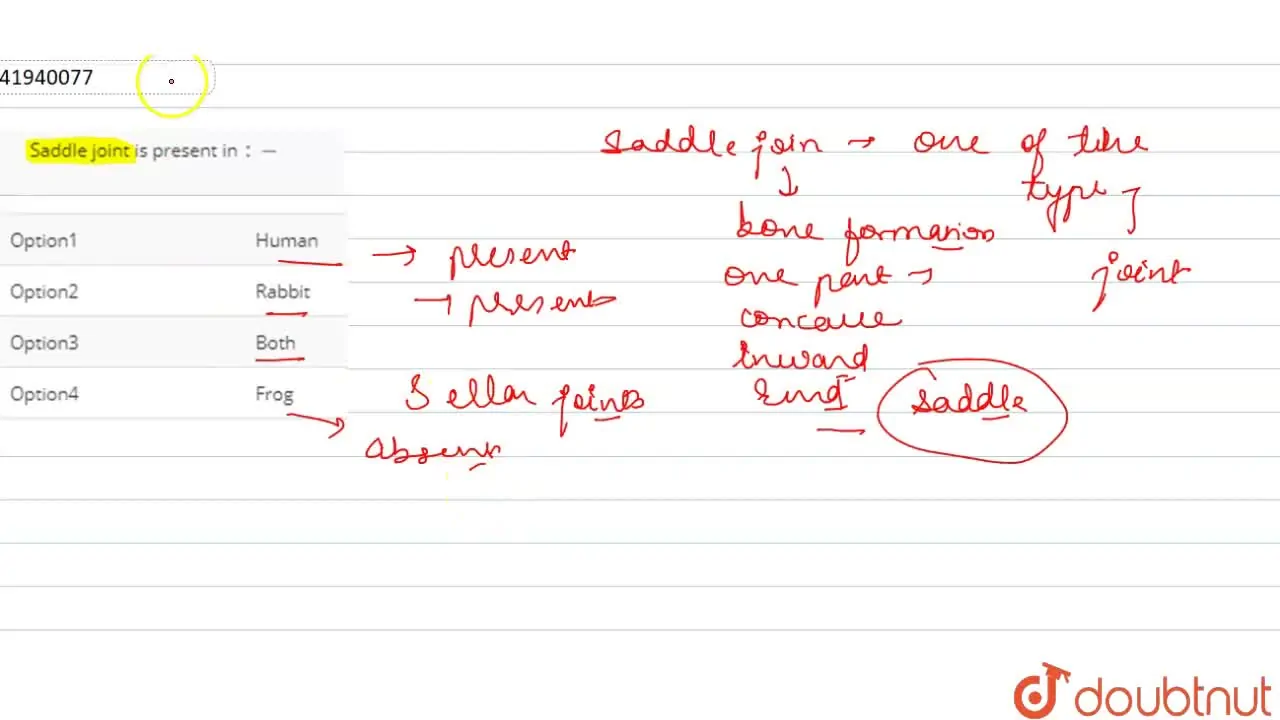 41940077
Saddle joint is present in : —
Option1 Human
Option2 Rabbit
Option3 Both
Option4 Frog
→ present
→ present
Sellar joints
absent
saddle join → one of the
type
joint
bone formation
one part →
concave
inward
end
saddle
doubtnut